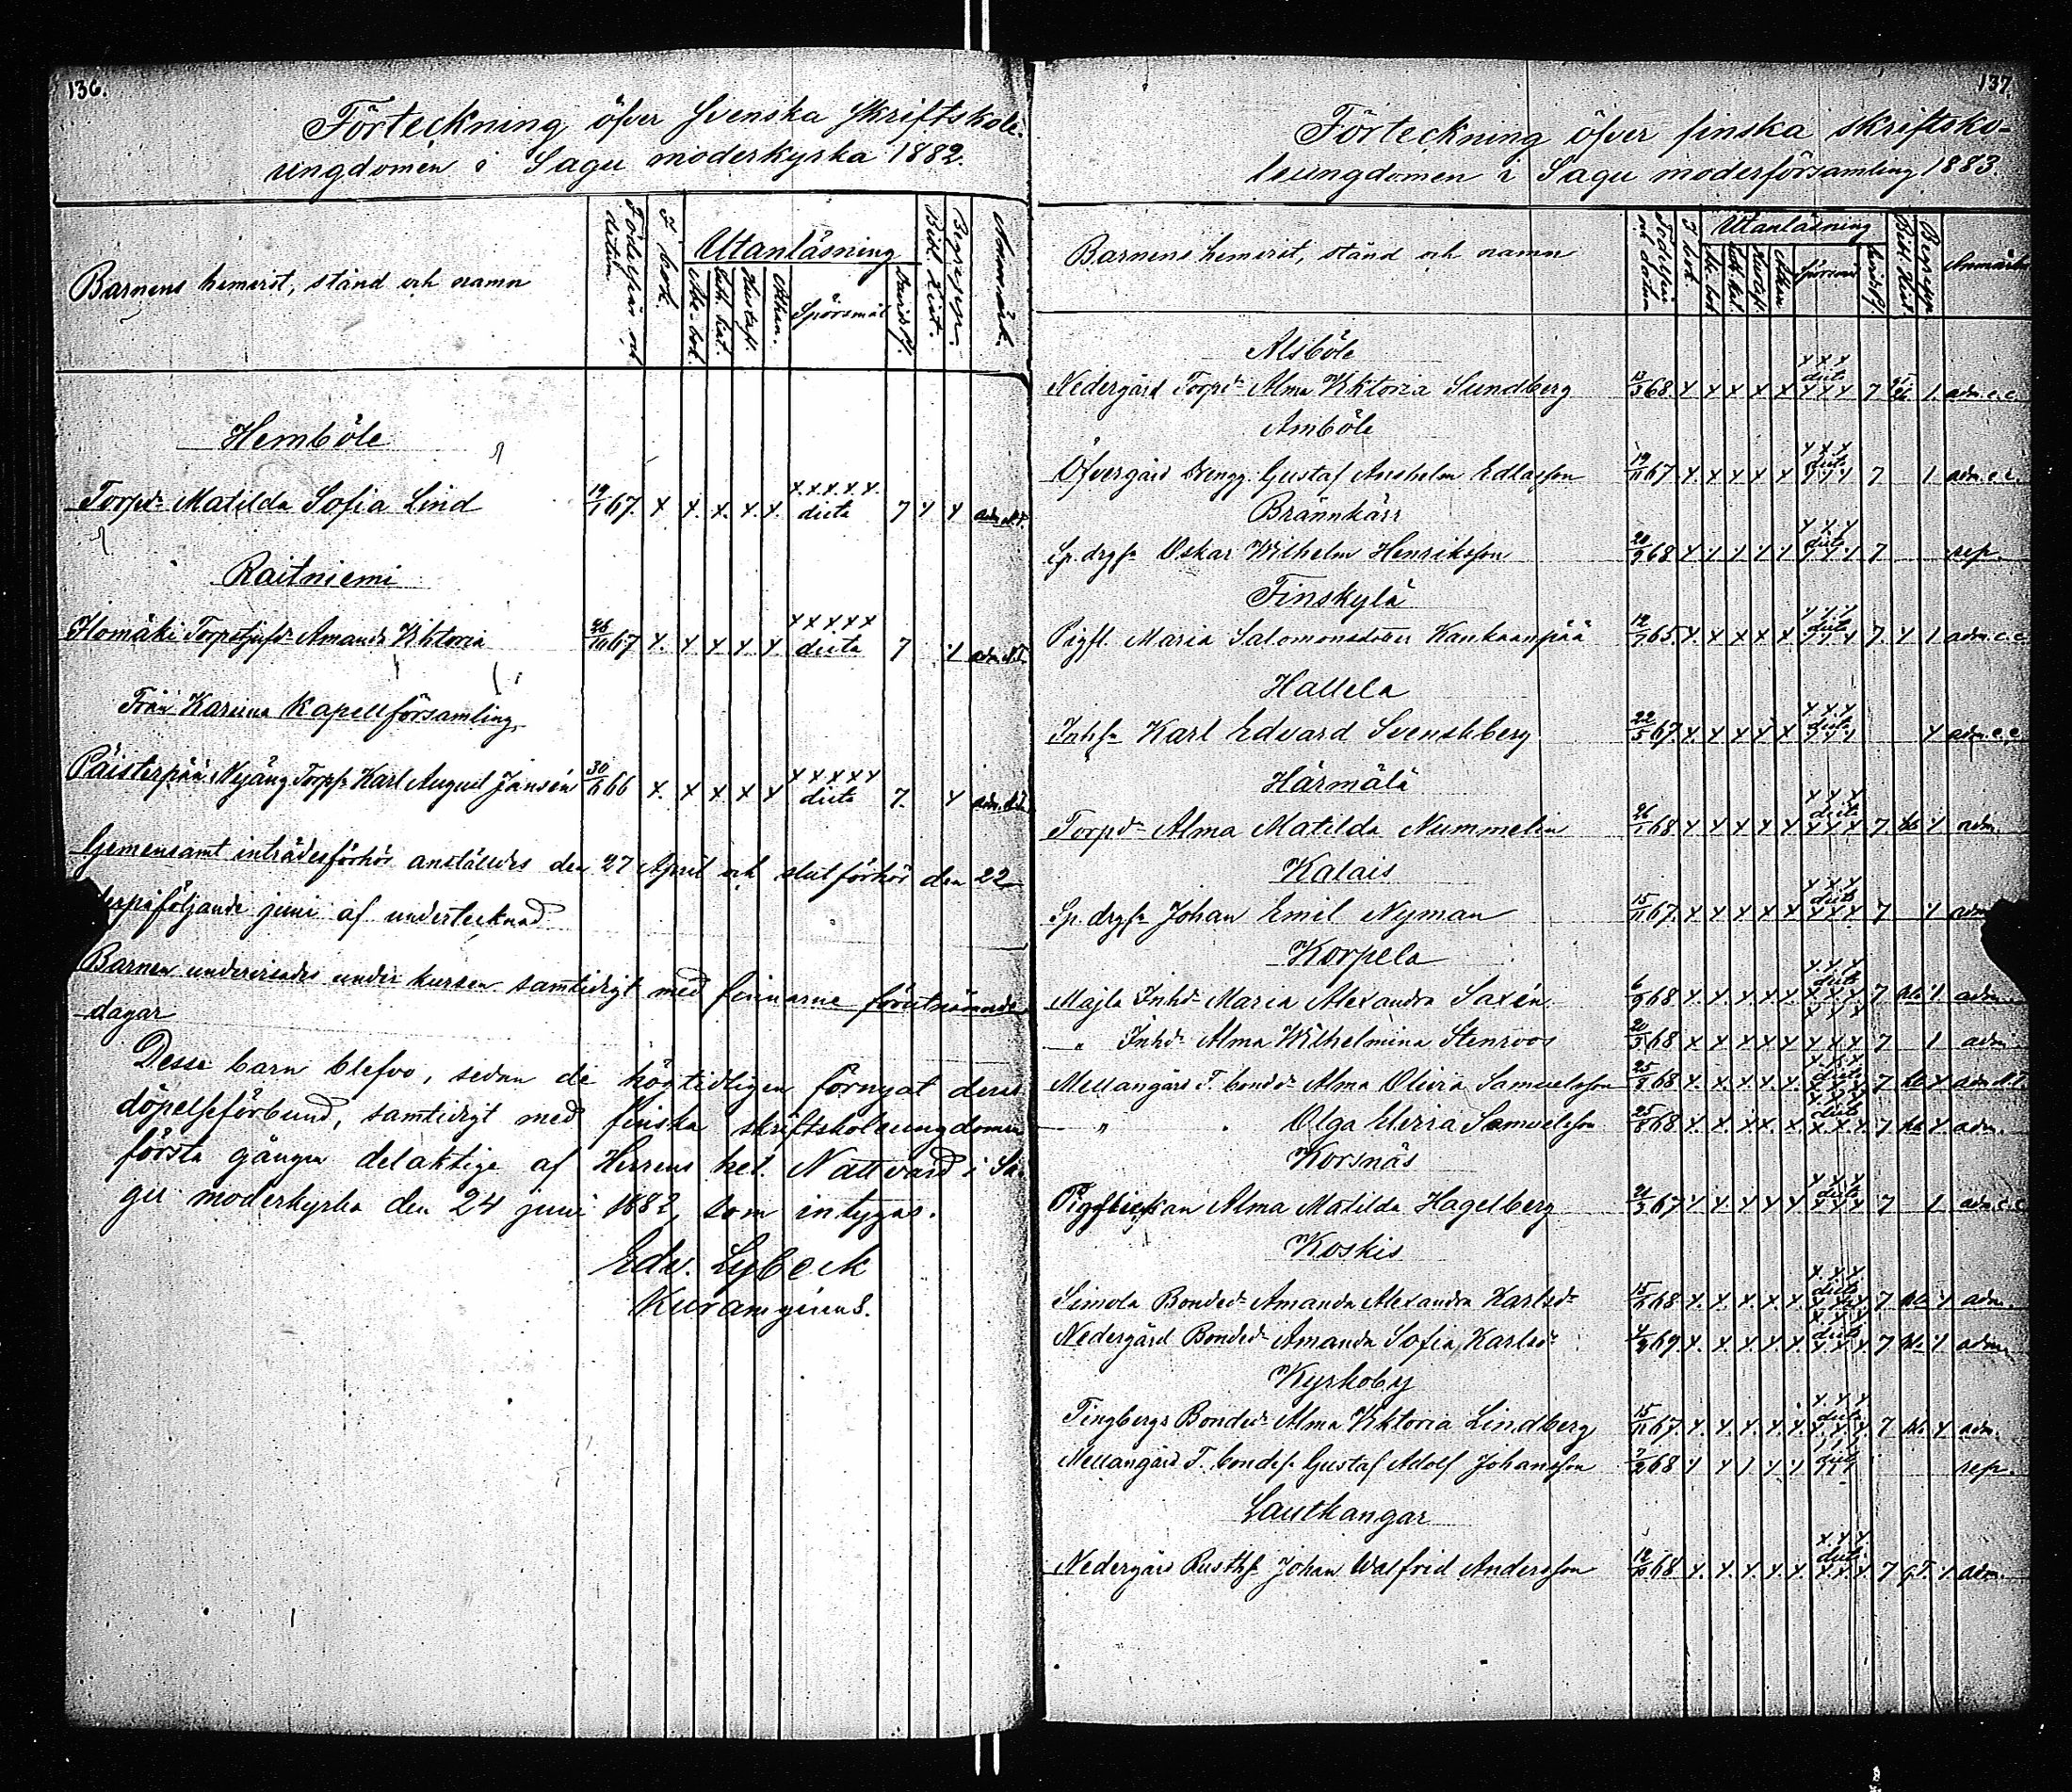 136.
Förteckning öfver Svenska Skriftskole-
ungdomen i Sagu moderkyrka 1882.
Barnens hemvist, stånd och namn
Födelseår och datum
I bok.
Utanläsning
Abc-bok.
Luth. kat.
Hustafl.
Athan.
Spörsmål
Davids ps.
Bibl. Hist.
Begrepp.
Anmärk.
Hemböle
Torpd. Matilda Sofia Lind 19/1 67. x x. x. x. x. x.x.x.x.x. dicta 7 x x
Raitniemi
Ilomäki Amanda Viktoria 26/10 67 x. x x x x x x x x x dicta 7 1
Från Karuna Kapellförsamling
Päisterpää Nyäng Torps. Karl August Jansén 30/ 66 x. x x. x x x x x x x dicta 7. x
Gemensamt inträdesförhör anställdes den 27 April och slutförhör den 22
derpåföljande juni af undertecknad
Barnen undervisades under kursen samtidigt med finnarne förutnämnde
dagar
Desse barn blefvo, sedan de högtidligen förnyat deras
döpelseförbund, samtidigt med finska skriftskoleungdomen
första gången delaktige af Herrens hel. Nattvard i Sa-
gu moderkyrka den 24 juni 1882, som intygar.
Edv. Lybeck
137.
Förteckning öfver finska skriftsko-
leungdomen i Sagu moderförsamling 1883.
Barnens hemvist, stånd och namn
Födelseår och datum
I bok.
Utanläsning
Abc bok
Luth. kat.
Hustafl.
Athan.
Spörsmål
Davids ps.
Bibl. Hist.
Begrepp
Anmärk.
Alsböle
Nedergård Torpd. Alma Viktoria Sundberg 13/3 68. x x x x x x x x dicta x x x 7 1. adm. c.c.
Amböle
Öfvergård Drengg. Gustaf Anshelm Edlasson 19/11 67 x. x x x x x x x dicta 7 1 adm. c.c.
Brännkärr
Sp. drgs. Oskar Wilhelm Henriksson 20/9 68 dicta 7 rep.
Finskylä
Pigfl. Maria Salomonsdotter Kankaanpää 12/7 65 x. x x x x dicta 7. x 1 adm. c.c.
Hallela
Inhs. Karl Edvard Svenskberg 22/5 67. x. x x x x x x x dicta x adm. c.c.
Härmälä
Torpd. Alma Matilda Nummelin 26/1 68 x x x x x x x x dicta x x x 7 x adm.
Kalais
Sp. drgs. Johan Emil Nyman 15/11 67. x x x x x x x x dicta x x x 7 1 adm
Korpela
Majla Inhd. Maria Alexandra Saxén 6/9 68 x. x. x. x. x x x x dicta x x x 7 1 adm.
" Inhd. Alma Wilhelmina Stenroos 20/3 68 x x x x x x x x 7 1 adm.
Mellangård T. bondd. Alma Olivia Samuelsson 25/8 68 x. x. x. x. x x x x dicta x x x 7 x adm.
" " Olga Elviira Samuelsson 25/8 68 x. x. x x. x. x x x dicta x. x. x. 7 x. adm.
Korsnäs
Pigflickan Alma Matilda Hagelberg 21/3 67 x x. x x x x x x dicta x x x 7 1 adm. c.c.
Koskis
Simola Bonded. Amanda Alexandra Karlsd. 15/ 68 x. x. x. x. x. x x x dicta x x x 7 x adm.
Nedergård Bonded. Amanda Sofia Karlsd. 69 x. x. x. x. x x x x dicta x x x 7 1 adm.
Kyrkoby
Tingbergs Bonded. Alma Viktoria Lindberg 15/11 67. x. x. x. x. x. x x x dicta x. x. x. 7 x adm.
Mellangård T. bondes. Gustaf Adolf Johansson 7/2 68 x x x x dicta rep.
Lautkangar
Nedergård Rusths. Johan Walfrid Andersson 12/10 68 x. x. x. x. x. x. x x dicta x x x 7 1 adm.